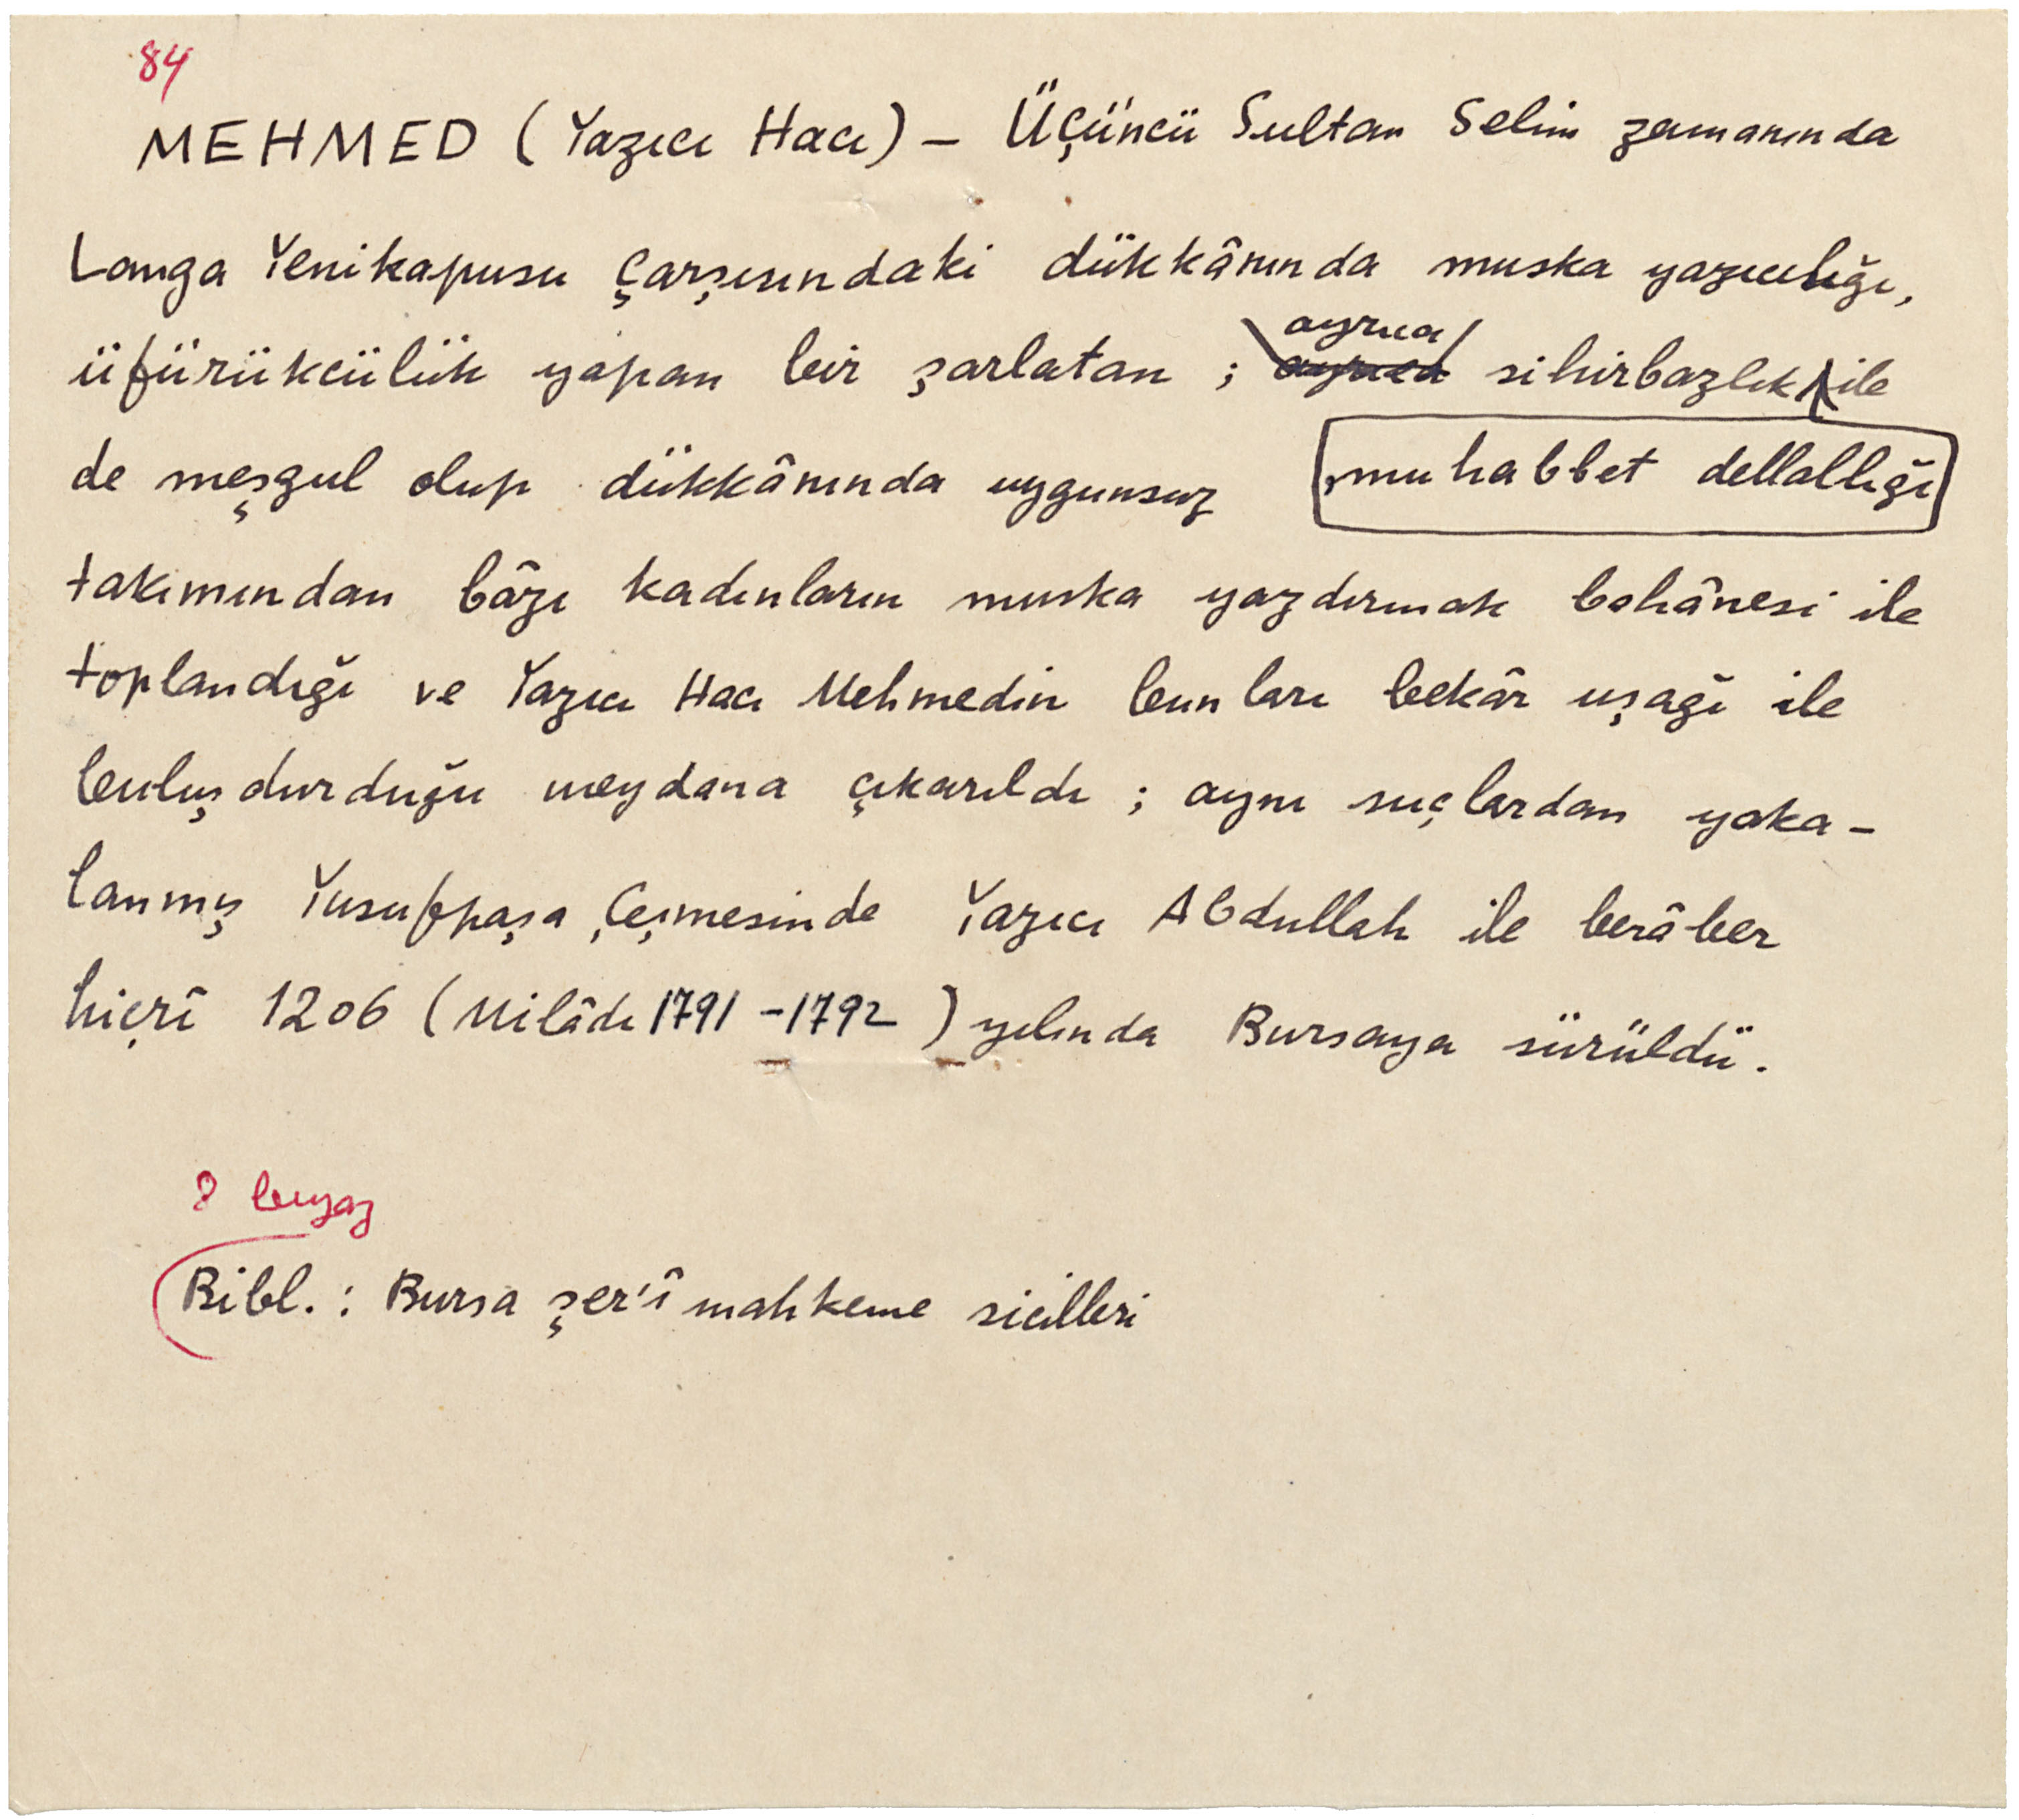 84
MEHMED (Yazıcı Hacı) – Üçüncü Sultan Selim zamanında
Langa Yenikapusu Çarşısındaki dükkânında muska yazıcılığı,
üfürükcülük yapan bir şarlatan ; ayrıca sihirbazlık ile
, muhabbet dellallığı
de meşgul olup dükkânında uygunsuz
takımından bâzı kadınların muska yazdırmak bahânesi ile
toplandığı ve Yazıcı Hacı Mehmedin bunları bekâr uşağı ile
buluşdurduğu meydana çıkarıldı ; aynı suçlardan yaka-
lanmış Yusufpaşa Çeşmesinde Yazıcı Abdullah ile berâber
hicrî 1206 (Milâdı 1791 – 1792 ) yılında Bursaya sürüldü.
8 beyaz
Bibl. : Bursa şer'î mahkeme sicilleri